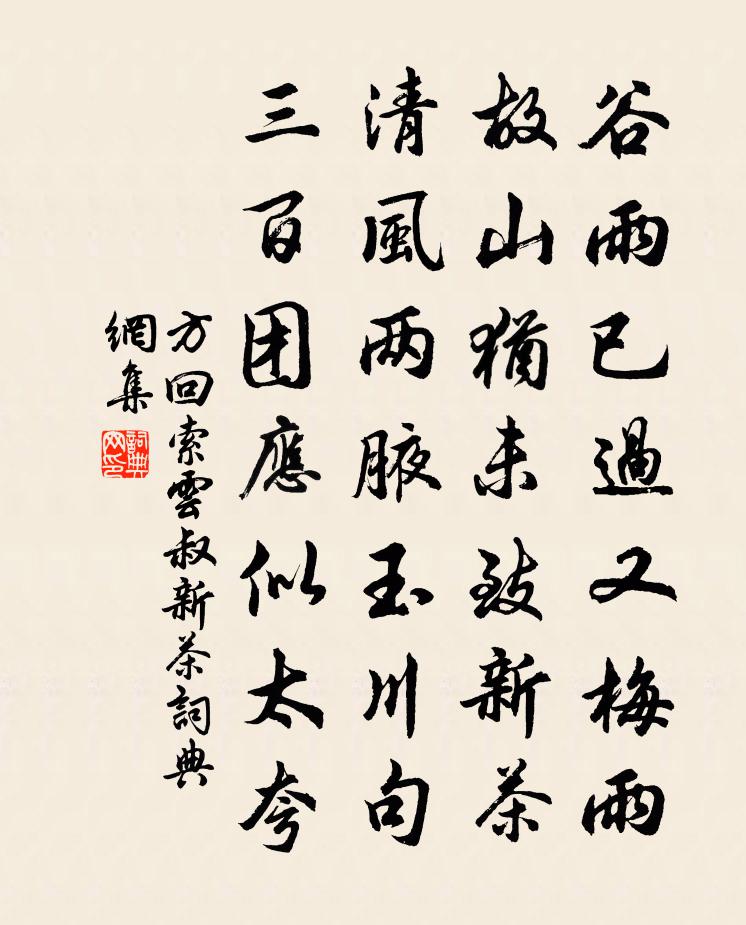 谷雨已過又梅雨
故山猶未致新茶
清風两腋玉川句
三百团應似太夸
方回索雲叔新茶詞典
網集
詞典網印